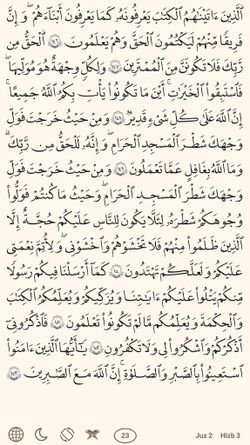 ٱلَّذِينَ ءَاتَيْنَٰهُمُ ٱلْكِتَٰبَ يَعْرِفُونَهُۥ كَمَا يَعْرِفُونَ أَبْنَآءَهُمْ ۖ وَإِنَّ
فَرِيقًا مِّنْهُمْ لَيَكْتُمُونَ ٱلْحَقَّ وَهُمْ يَعْلَمُونَ ١٤٦ ٱلْحَقُّ مِن
رَّبِّكَ فَلَا تَكُونَنَّ مِنَ ٱلْمُمْتَرِينَ ١٤٧ وَلِكُلٍّ وِجْهَةٌ هُوَ مُوَلِّيهَا ۖ
فَٱسْتَبِقُوا۟ ٱلْخَيْرَٰتِ ۚ أَيْنَ مَا تَكُونُوا۟ يَأْتِ بِكُمُ ٱللَّهُ جَمِيعًا ۚ
إِنَّ ٱللَّهَ عَلَىٰ كُلِّ شَىْءٍ قَدِيرٌ ١٤٨ وَمِنْ حَيْثُ خَرَجْتَ فَوَلِّ
وَجْهَكَ شَطْرَ ٱلْمَسْجِدِ ٱلْحَرَامِ ۖ وَإِنَّهُۥ لَلْحَقُّ مِن رَّبِّكَ ۗ
وَمَا ٱللَّهُ بِغَٰفِلٍ عَمَّا تَعْمَلُونَ ١٤٩ وَمِنْ حَيْثُ خَرَجْتَ فَوَلِّ
وَجْهَكَ شَطْرَ ٱلْمَسْجِدِ ٱلْحَرَامِ ۚ وَحَيْثُ مَا كُنتُمْ فَوَلُّوا۟
وُجُوهَكُمْ شَطْرَهُۥ لِئَلَّا يَكُونَ لِلنَّاسِ عَلَيْكُمْ حُجَّةٌ إِلَّا
ٱلَّذِينَ ظَلَمُوا۟ مِنْهُمْ فَلَا تَخْشَوْهُمْ وَٱخْشَوْنِى وَلِأُتِمَّ نِعْمَتِى
عَلَيْكُمْ وَلَعَلَّكُمْ تَهْتَدُونَ ١٥٠ كَمَآ أَرْسَلْنَا فِيكُمْ رَسُولًا
مِّنكُمْ يَتْلُوا۟ عَلَيْكُمْ ءَايَٰتِنَا وَيُزَكِّيكُمْ وَيُعَلِّمُكُمُ ٱلْكِتَٰبَ
وَٱلْحِكْمَةَ وَيُعَلِّمُكُم مَّا لَمْ تَكُونُوا۟ تَعْلَمُونَ ١٥١ فَٱذْكُرُونِىٓ
أَذْكُرْكُمْ وَٱشْكُرُوا۟ لِى وَلَا تَكْفُرُونِ ١٥٢ يَٰٓأَيُّهَا ٱلَّذِينَ ءَامَنُوا۟
ٱسْتَعِينُوا۟ بِٱلصَّبْرِ وَٱلصَّلَوٰةِ ۚ إِنَّ ٱللَّهَ مَعَ ٱلصَّٰبِرِينَ ١٥٣
23 Juz 2 Hizb 3